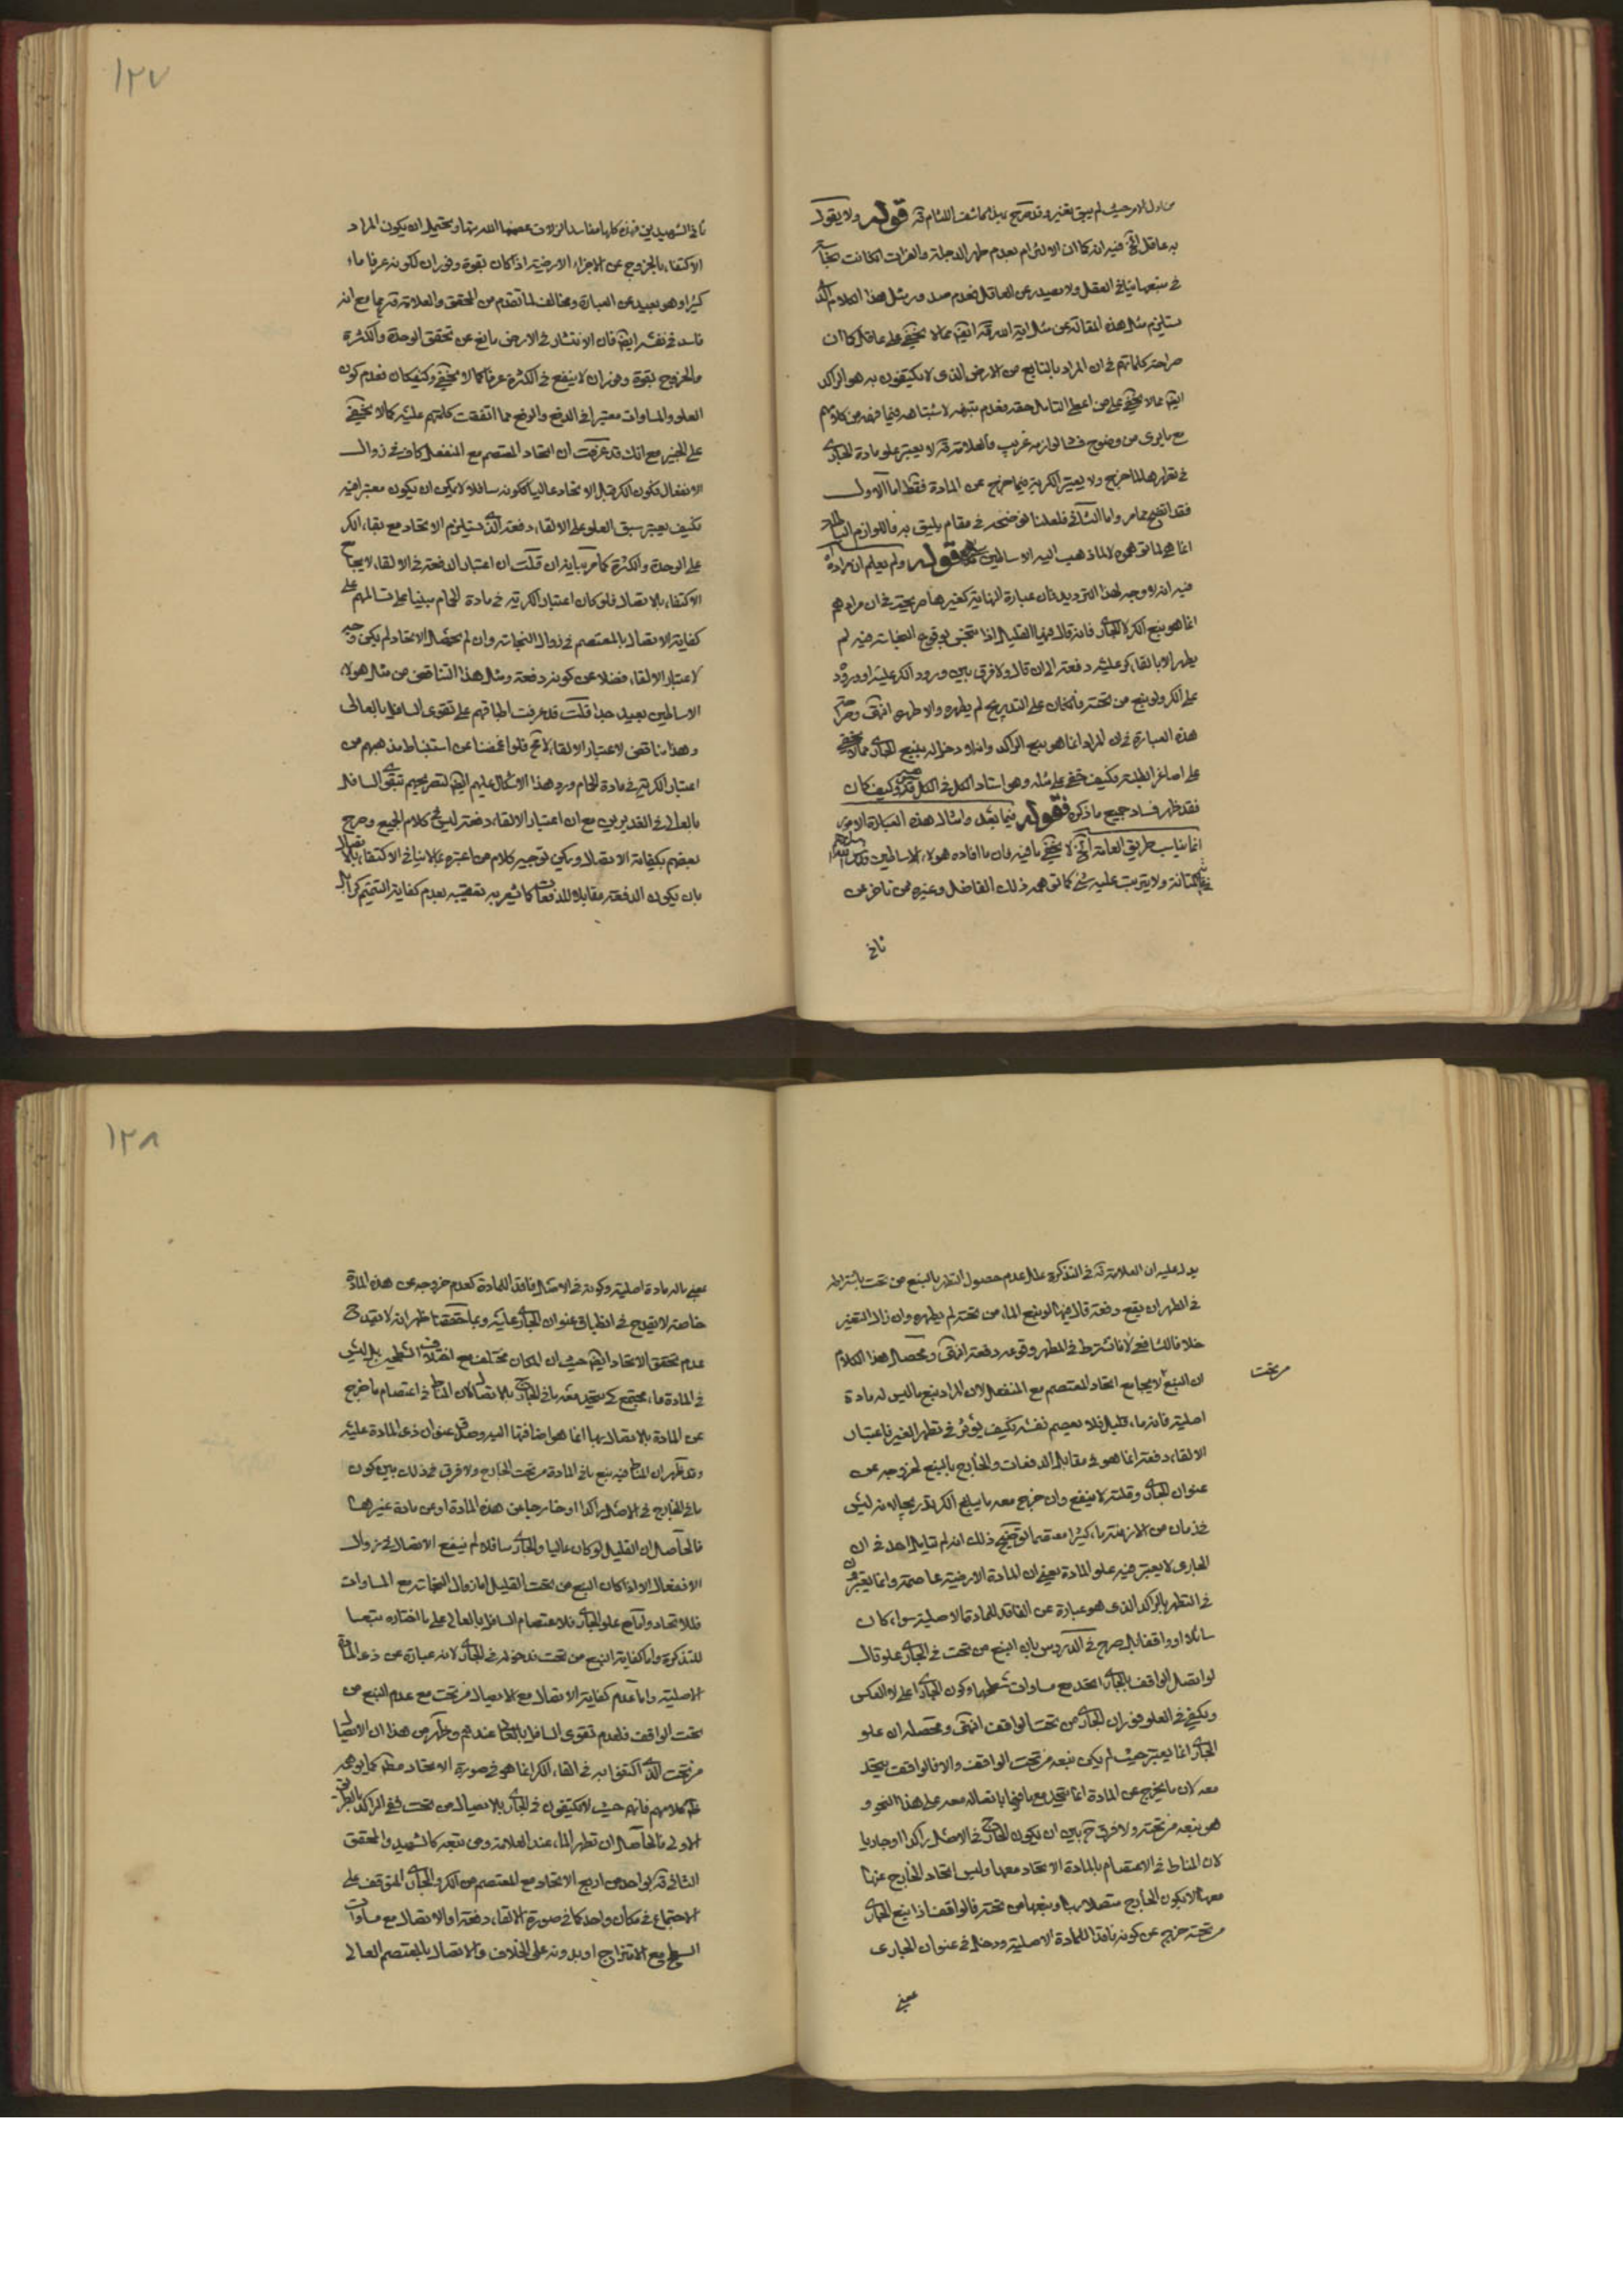 من اول الامر حيث لم يبق تغير وقد صرح بذلك كاشف اللثام قده قوله ولا يقول
به عاقل الخ فيه انه كما ان الالتزام بعدم طهر الدجلة والفرات اذا كانت
في منبعهما ينافي العقل ولا يصدر عن العاقل فعدم صدور مثل هذا الكلام الذي
يستلزم مثل هذه المقالة عن مثل اية الله قده ايضا مما لا يخفى على عاقل كما ان
صراحة كلماتهم في ان المراد بالنابع من الارض الذي لا يكتفون به هو الراكد
ايضا مما لا يخفى على من اعطى التامل حقه فعدم تنبهه لاشتباهه فيما فهمه من كلامهم
مع ما يرى من وضوح فساد لوازمه غريب فالعلامة قده لا يعتبر علو مادة الجاري
في تطهرها لما خرج ولا يعتبر الكرية فيما خرج عن المادة فقط اما الاول
فقد اتضح مما مر واما الثاني فلعلنا نوضحه في مقام يليق به فاللوازم
انما هي لما توهموه لا لما ذهب اليه الاساطين قوله ولم يعلم ان مراده
فيه انه لا وجه لهذا الترديد فان عبارة النهاية كغيرها صريحة في ان مرادهم
انما هو نبع الكر لا الجاري فانه قال فيها القليل اذا تنجس بوقوع النجاسة فيه لم
يطهر الا بالقاء كر عليه دفعة الى ان قال ولا فرق بين ورود الكر عليه او وروده
على الكر ولو نبع من تحته فان كان على التدريج لم يطهره والا طهر انتهى وصراحة
هذه العبارة في ان المراد انما هو نبع الراكد وانه لا دخل له بنبع الجاري مما لا يخفى
على اصاغر الطلبة فكيف تخفى على مثله وهو استاد الكل في الكل قدس سره وكيف كان
فقد ظهر فساد جميع ما ذكره قوله فيما بعد وامثال هذه العبارة الامور
انما يناسب طريق العامة الخ لا يخفى ما فيه فان ما افاده هؤلاء الاساطين قدس الله اسرارهم
في غاية المتانة ولا يترتب عليه شيء كما توهمه ذلك الفاضل وغيره ممن تاخر عن
ثاني
١٢٧
ثاني الشهيدين فهذه كلها مفاسد الزلات عصمنا الله منها ويحتمل ان يكون المراد
الاكتفاء بالخروج عن الاجزاء الارضية اذا كان بقوة وفوران لكونه عرفا ماء
كثيرا وهو بعيد عن العبارة ومخالف لما تقدم من المحقق والعلامة قدهما مع انه
فاسد في نفسه ايضا فان الانتشار في الارض مانع عن تحقق الوحدة والكثرة
والخروج بقوة وفوران لا ينفع في الكثرة عرفا كما لا يخفى وكيف كان فعدم كون
العلو والمساوات معتبرا في الدفع والرفع مما اتفقت كلمتهم عليه كما لا يخفى
على الخبير مع انك قد عرفت ان اتحاد المعتصم مع المنفعل كاف في زوال
الانفعال فكون الكر قبل الاتحاد عاليا ككونه سافلا لا يمكن ان يكون معتبرا فيه
فكيف يعتبر سبق العلو على الالقاء دفعة الذي يستلزم الاتحاد مع بقاء الكر
على الوحدة والكثرة كما مر بيانه فان قلت ان اعتبار الدفعة في الالقاء لا يجامع
الاكتفاء بالاتصال فلو كان اعتبار الكرية في مادة الحمام مبنيا على تسالمهم على
كفاية الاتصال بالمعتصم في زوال النجاسة وان لم يحصل الاتحاد لم يكن وجه
لاعتبار الالقاء فضلا عن كونه دفعة ومثل هذا التناقض من مثل هؤلاء
الاساطين بعيد جدا قلت قد عرفت اطباقهم على تقوى السافل بالعالي
وهذا يناقض لاعتبار الالقاء لا مح فلو اغمضنا عن استنباط مذهبهم من
اعتبار الكرية في مادة الحمام ورد هذا الاشكال عليهم ايضا لتصريحهم بتقوى السافل
بالعالي في الغديرين مع ان اعتبار الالقاء دفعة ليس في كلام الجميع وصرح
بعضهم بكفاية الاتصال ويمكن توجيه كلام من اعتبره بما لا ينافي الاكتفاء بالاتصال
بان يكون الدفعة مقابلا للدفعات كما يشعر به تعقيبه بعدم كفاية التتميم كرا بل
يدل عليه ان العلامة قده في التذكرة علل عدم حصول التطهر بالنبع من تحت باشتراطه
في الطهر ان يقع دفعة قال فيها لو نبع الماء من تحته لم يطهره وان زال التغير
خلافا للشافعي لانا نشترط في المطهر وقوعه دفعة انتهى ومحصل هذا الكلام
ان النبع لا يجامع اتحاد المعتصم مع المنفعل لان المراد نبع ما ليس له مادة
من تحت
اصلية فانه ماء قليل فلا يعصم نفسه فكيف يؤثر في تطهر الغير فاعتبار
الالقاء دفعة انما هو في مقابل الدفعات والخارج بالنبع لخروجه عن
عنوان الجاري وقلته لا ينفع وان خرج معه ما يبلغ الكر تدريجا لانه ليس
في زمان من الازمنة ماء كثيرا معتصما توضيح ذلك انه لم تامل احد في ان
الجاري لا يعتبر فيه علو المادة بمعنى ان المادة الارضية عاصمة وانما يعتبرون
في التطهر بالراكد الذي هو عبارة عن الفاقد للمادة الاصلية سواء كان
سائلا او واقفا بل صرح في الدروس بان النبع من تحت في الجاري علو قال
لو اتصل الواقف بالجاري اتحد مع مساوات سطحهما وكون الجاري اعلى لا العكس
ويكفي في العلو فوران الجاري من تحت الواقف انتهى ومحصله ان علو
الجاري انما يعتبر حيث لم يكن نبعه من تحت الواقف والا فالواقف يتحد
معه لان ما يخرج عن المادة انما يتحد مع ما فيها باتصاله معه على هذا النحو و
هو نبعه من تحته ولا فرق ح بين ان يكون الخارج في الاصل راكدا او جاريا
لان المناط في الاعتصام بالمادة الاتحاد معها وليس اتحاد الخارج عنها
معها الا بكون الخارج متصلا بها ونبعها من تحته فالواقف اذا نبع الجاري
من تحته خرج عن كونه فاقدا للمادة الاصلية ودخل في عنوان الجاري
بمعنى
١٢٨
بمعنى ماله مادة اصلية وكونه في الاصل فاقدا للمادة كعدم خروجه عن هذه المادة
خاصة لا يقدح في انطباق عنوان الجاري عليه وبما حققنا ظهر انه لا يقدح
عدم تحقق الاتحاد ايضا حيث ان المكان مختلف مع اختلاف السطحين بل ليس
في المادة ماء مجتمع كي يتحد معه ما في الخارج بالاتصال لان المناط في اعتصام ما خرج
عن المادة بالاتصال بها انما هو اضافتها اليه وصدق عنوان ذي المادة عليه
وقد ظهر ان المناط فيه نبع ما في المادة من تحت الخارج ولا فرق في ذلك بين كون
ما في الخارج في الاصل راكدا او خارجا من هذه المادة او من مادة غيرها
فالحاصل ان القليل لو كان عاليا والجاري سافلا لم ينفع الاتصال في زوال
الانفعال الا اذا كان النبع من تحت القليل اما زوال النجاسة مع المساوات
فللاتحاد واما مع علو الجاري فلاعتصام السافل بالعالي على ما اختاره تبعا
للتذكرة واما كفاية النبع من تحت فلدخوله في الجاري لانه عبارة عن ذي المادة
الاصلية واما عدم كفاية الاتصال مع الاتصال من تحت مع عدم النبع من
تحت الواقف فلعدم تقوى السافل بالعالي عندهم وظهر من هذا ان الاتصال
من تحت الذي اكتفوا به في القاء الكر انما هو في صورة الاتحاد مطلقا كما يوهمه
ظاهر كلامهم فانهم حيث لا يكتفون في الجاري بالاتصال من تحت ففي الراكد بالطريق
الاولى فالحاصل ان تطهر الماء عند العلامة ومن تبعه كالشهيد والمحقق
الثاني قده بواحد من اربع الاتحاد مع المعتصم من الكر والجاري المتوقف على
الاجتماع في مكان واحد كما في صورة الالقاء دفعة او الاتصال مع مساوات
السطح مع الامتزاج او بدونه على الخلاف والاتصال بالمعتصم العالي